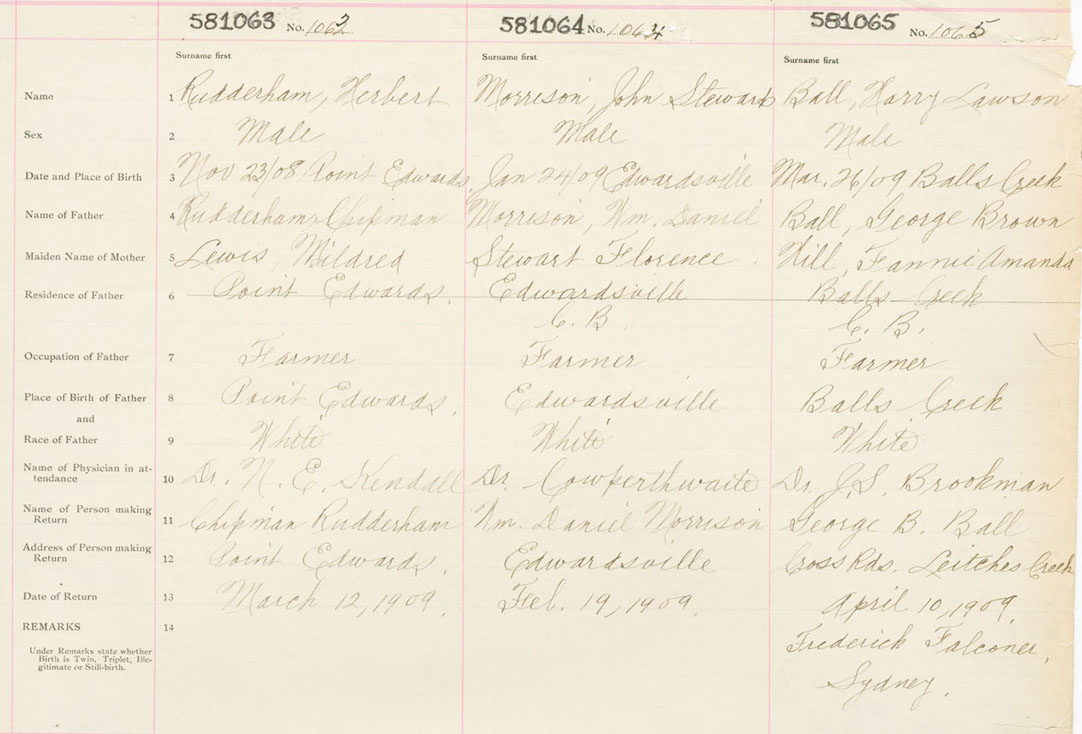 581063 No. 1063 581064 No. 1064 581065 No. 1065
Surname first Surname first Surname first
Name 1 Rudderham, Herbert Morrison, John Stewart Ball, Harry Lawson
Sex 2 Male Male Male
Date and Place of Birth 3 Nov 23/08 Point Edwards, Jan 24/09 Edwardsville Mar. 26/09 Balls Creek
Name of Father 4 Rudderham, Chipman Morrison, Wm. Daniel Ball, George Brown
Maiden Name of Mother 5 Lewis, Mildred Stewart Florence. Hill, Fannie Amanda
Residence of Father 6 Point Edwards, Edwardsville Balls Creek
C. B. C. B.
Occupation of Father 7 Farmer Farmer Farmer
Place of Birth of Father 8 Point Edwards, Edwardsville Balls Creek
and
Race of Father 9 White White White
Name of Physician in at-
tendance 10 Dr. N. E. Kendall Dr. Cowperthwaite Dr. J.S. Brookman
Name of Person making
Return 11 Chipman Rudderham Wm. Daniel Morrison George B. Ball
Address of Person making
Return 12 Point Edwards, Edwardsville Cross Rds. Leitches Creek
Date of Return 13 March 12, 1909, Feb. 19, 1909, April 10, 1909,
REMARKS 14 Frederick Falconer,
Under Remarks state whether
Birth is Twin, Triplet, Ille-
gitimate or Still-birth.
Sydney.